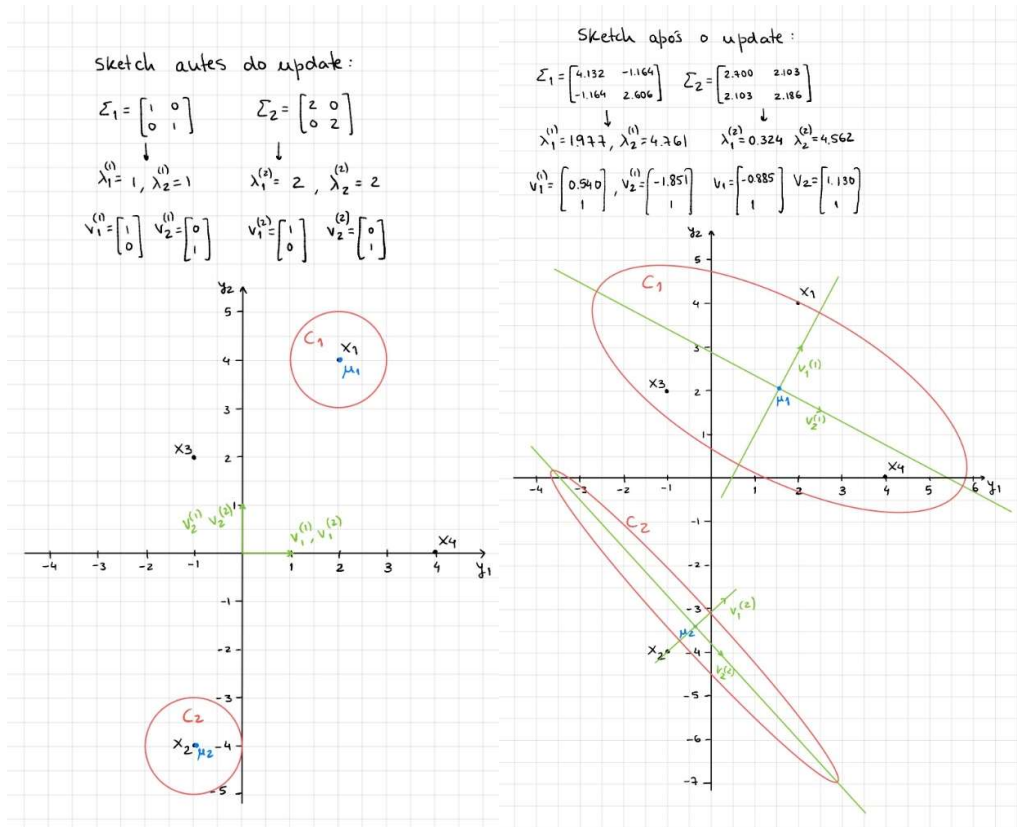 Sketch antes do update:
Σ₁ = [1 0; 0 1] Σ₂ = [2 0; 0 2]
↓ ↓
λ₁⁽¹⁾ = 1, λ₂⁽¹⁾ = 1 λ₁⁽²⁾ = 2, λ₂⁽²⁾ = 2
v₁⁽¹⁾ = [1; 0] v₂⁽¹⁾ = [0; 1] v₁⁽²⁾ = [1; 0] v₂⁽²⁾ = [0; 1]
y₂
5
C₁
x₁
4
μ₁
3
x₃
2
1
v₂⁽¹⁾ v₂⁽²⁾
v₁⁽¹⁾, v₁⁽²⁾
x₄
-4 -3 -2 -1 1 2 3 4 y₁
-1
-2
-3
C₂
x₂ μ₂ -4
-5
Sketch após o update:
Σ₁ = [4.132 -1.164; -1.164 2.606] Σ₂ = [2.700 2.103; 2.103 2.186]
↓ ↓
λ₁⁽¹⁾ = 1977, λ₂⁽¹⁾ = 4.761 λ₁⁽²⁾ = 0.324 λ₂⁽²⁾ = 4.562
v₁⁽¹⁾ = [0.540; 1], v₂⁽¹⁾ = [-1.851; 1] v₁ = [-0.885; 1] v₂ = [1.130; 1]
y₂
5
C₁
x₁
4
3
v₁⁽¹⁾
x₃
2
μ₁
v₂⁽¹⁾
1
x₄
-4 -3 -2 -1 1 2 3 4 5 6 y₁
-1
C₂
-2
-3
v₁⁽²⁾
μ₂
x₂ -4
v₂⁽²⁾
-5
-6
-7